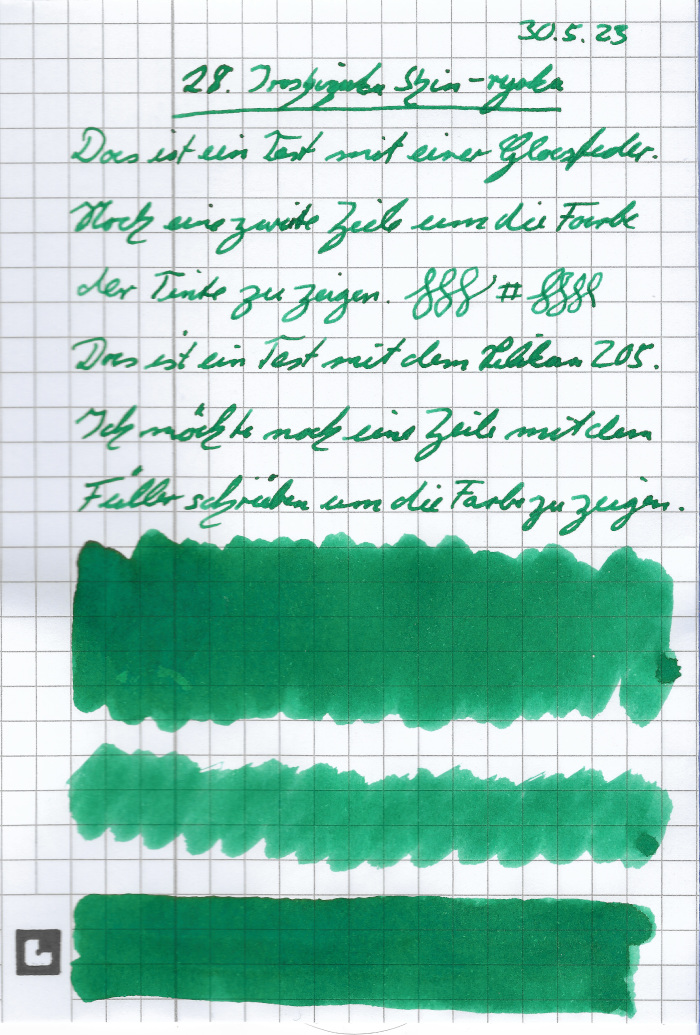 30.5.23
28. Iroshizuku Shin-ryoku
Das ist ein Test mit einer Glasfeder.
Noch eine zweite Zeile um die Farbe
der Tinte zu zeigen. #
Das ist ein Test mit dem Pelikan 205.
Ich möchte noch eine Zeile mit dem
Füller schreiben um die Farbe zu zeigen.